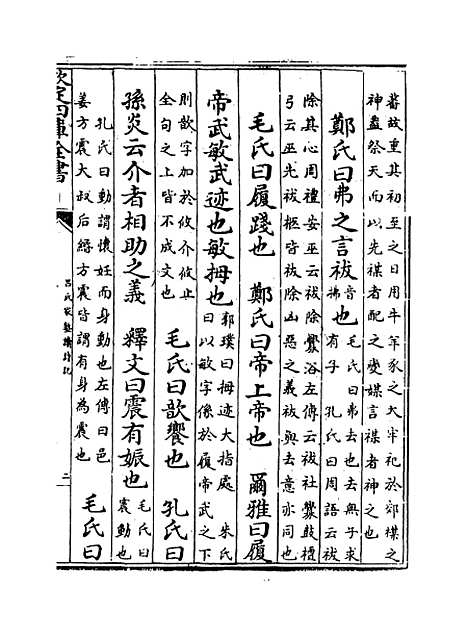 蕃故重其初至之日用牛羊豕之大牢祀於郊禖之
神蓋祭天而以先禖者配之變媒言禖者神之也
鄭氏曰弗之言祓音拂也毛氏曰弗去也去無子求
有子　孔氏曰周語云祓
除其心周禮女巫云祓除釁浴左傳云祓社釁鼓檀
弓云巫先祓柩皆祓除凶惡之義祓與去意亦同也
毛氏曰履踐也　鄭氏曰帝上帝也　爾雅曰履
帝武敏武迹也敏拇也郭璞曰拇迹大指處　朱氏
曰以敏字係於履帝武之下
則歆字加於攸介攸止
全句之上皆不成文也　毛氏曰歆饗也　孔氏曰
孫炎云介者相助之義　釋文曰震有娠也毛氏曰
震動也
孔氏曰動謂懷妊而身動也左傳曰邑
姜方震大叔后緡方震皆謂有身為震也　毛氏曰
欽定四庫全書
呂氏家塾讀詩記
二